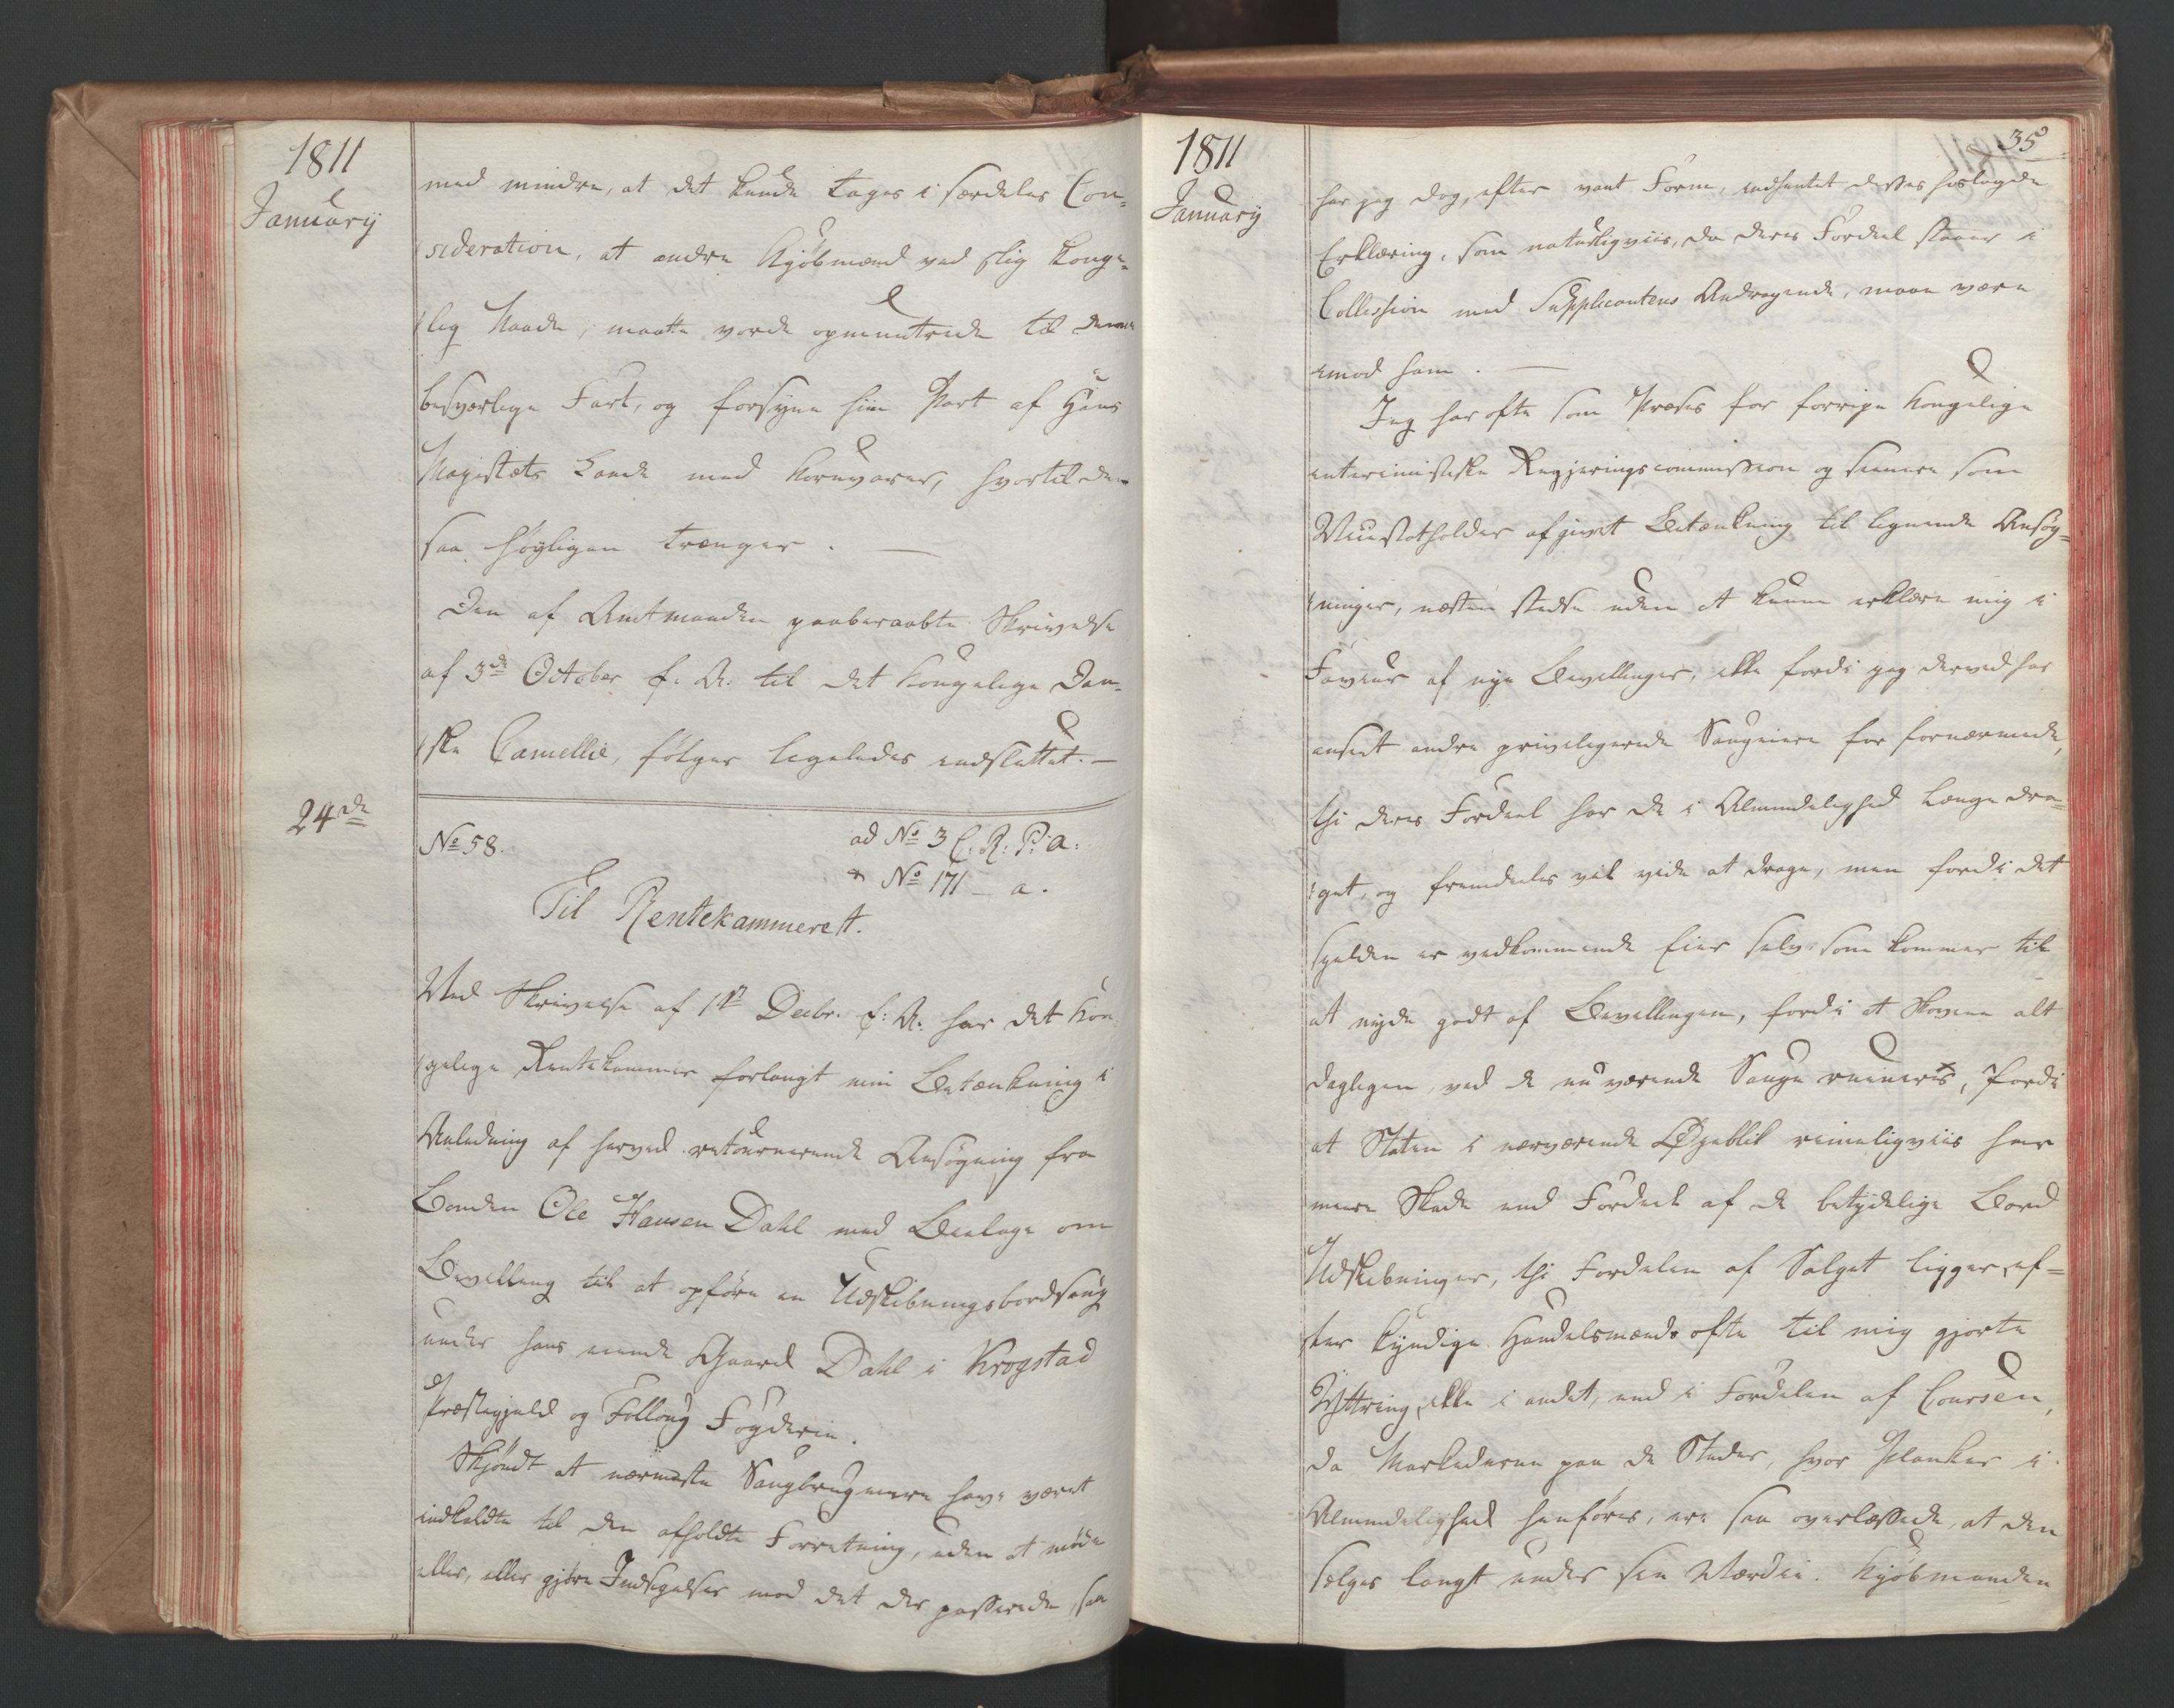 1811
January
med mindre, at det kunde tages i særdeles Con-
sideration, at andre Kjöbmænd ved slig Konge-
lig Naade, maatte vorde opmuntrede til denne
besværlige Fart, og forsyne hiin Part af Hans
Majestæts Lande med Kornvarer, hvortil den
saa höyligen trænger. —
Den af Amtmanden paaberaabte Skrivelse
af 3de October f: A: til det Kongelige Dan-
ske Cancellie, fölger ligeledes indsluttet. —
24de
No 58.
ad No 3 C: R: P: a:
& No 171 - a.
Til Rentekammeret.
Ved Skrivelse af 1ste Decbr. f: A: har det Kon
gelige Rentekammer forlangt min Betænkning i
Anledning af herved retournerende Ansögning fra
Bonden Ole Hansen Dahl med Beelage om
Bevilling til at opföre en Udskibningsbordsaug
under hans eiende Gaard Dahl i Krogstad
Præstegjeld og Folloug Fogderie.
Skjöndt at nærmeste Saugbrugeiere have været
indkaldte til den afholdte Forretning, uden at möde
eller, eller gjöre Indsigelser mod det der passerede, saa
1811
January
35
har jeg dog, efter vant Form, indhentet deres hoslagde
Erklæring, som naturligviis, da deres Fordeel staaer i
Collission med Supplicantens Andragende, maae være
imod ham. —
Jeg har ofte som Præses for forrige Kongelige
interimistiske Regjeringscommission og senere som
Viicestatholder afgivet Betænkning til lignende Ansög-
ninger, næsten stedse uden at kunne erklære mig i
Faveur af nye Bevillinger, ikke fordi jeg derved har
anseet andre privilegerede Saugeiere for fornærmede,
thi deres Fordeel har de i Almindelighed længe dra-
get, og fremdeeles vil vide at drage, men fordi det
sjelden er vedkommende Eier selv som kommer til
at nyde godt af Bevillingen, fordi at Skovene alt
dagligen ved de nu værende Sauge ruineres, fordi
at Staten i nærværende Öyeblik rimeligviis har
meere Skade end Fordeel af de betydelige Bord
Udskibninger, thi Fordelen af Salget ligger, ef-
ter kyndige Handelsmænds ofte til mig gjorte
Yttring, ikke i andet, end i Fordelen af Coursen,
da Markederne paa de Steder, hvor Planker i
Almindelighed henföres, ere saa overlæssede, at den
sælges langt under sin Værdie. Kjöbmanden